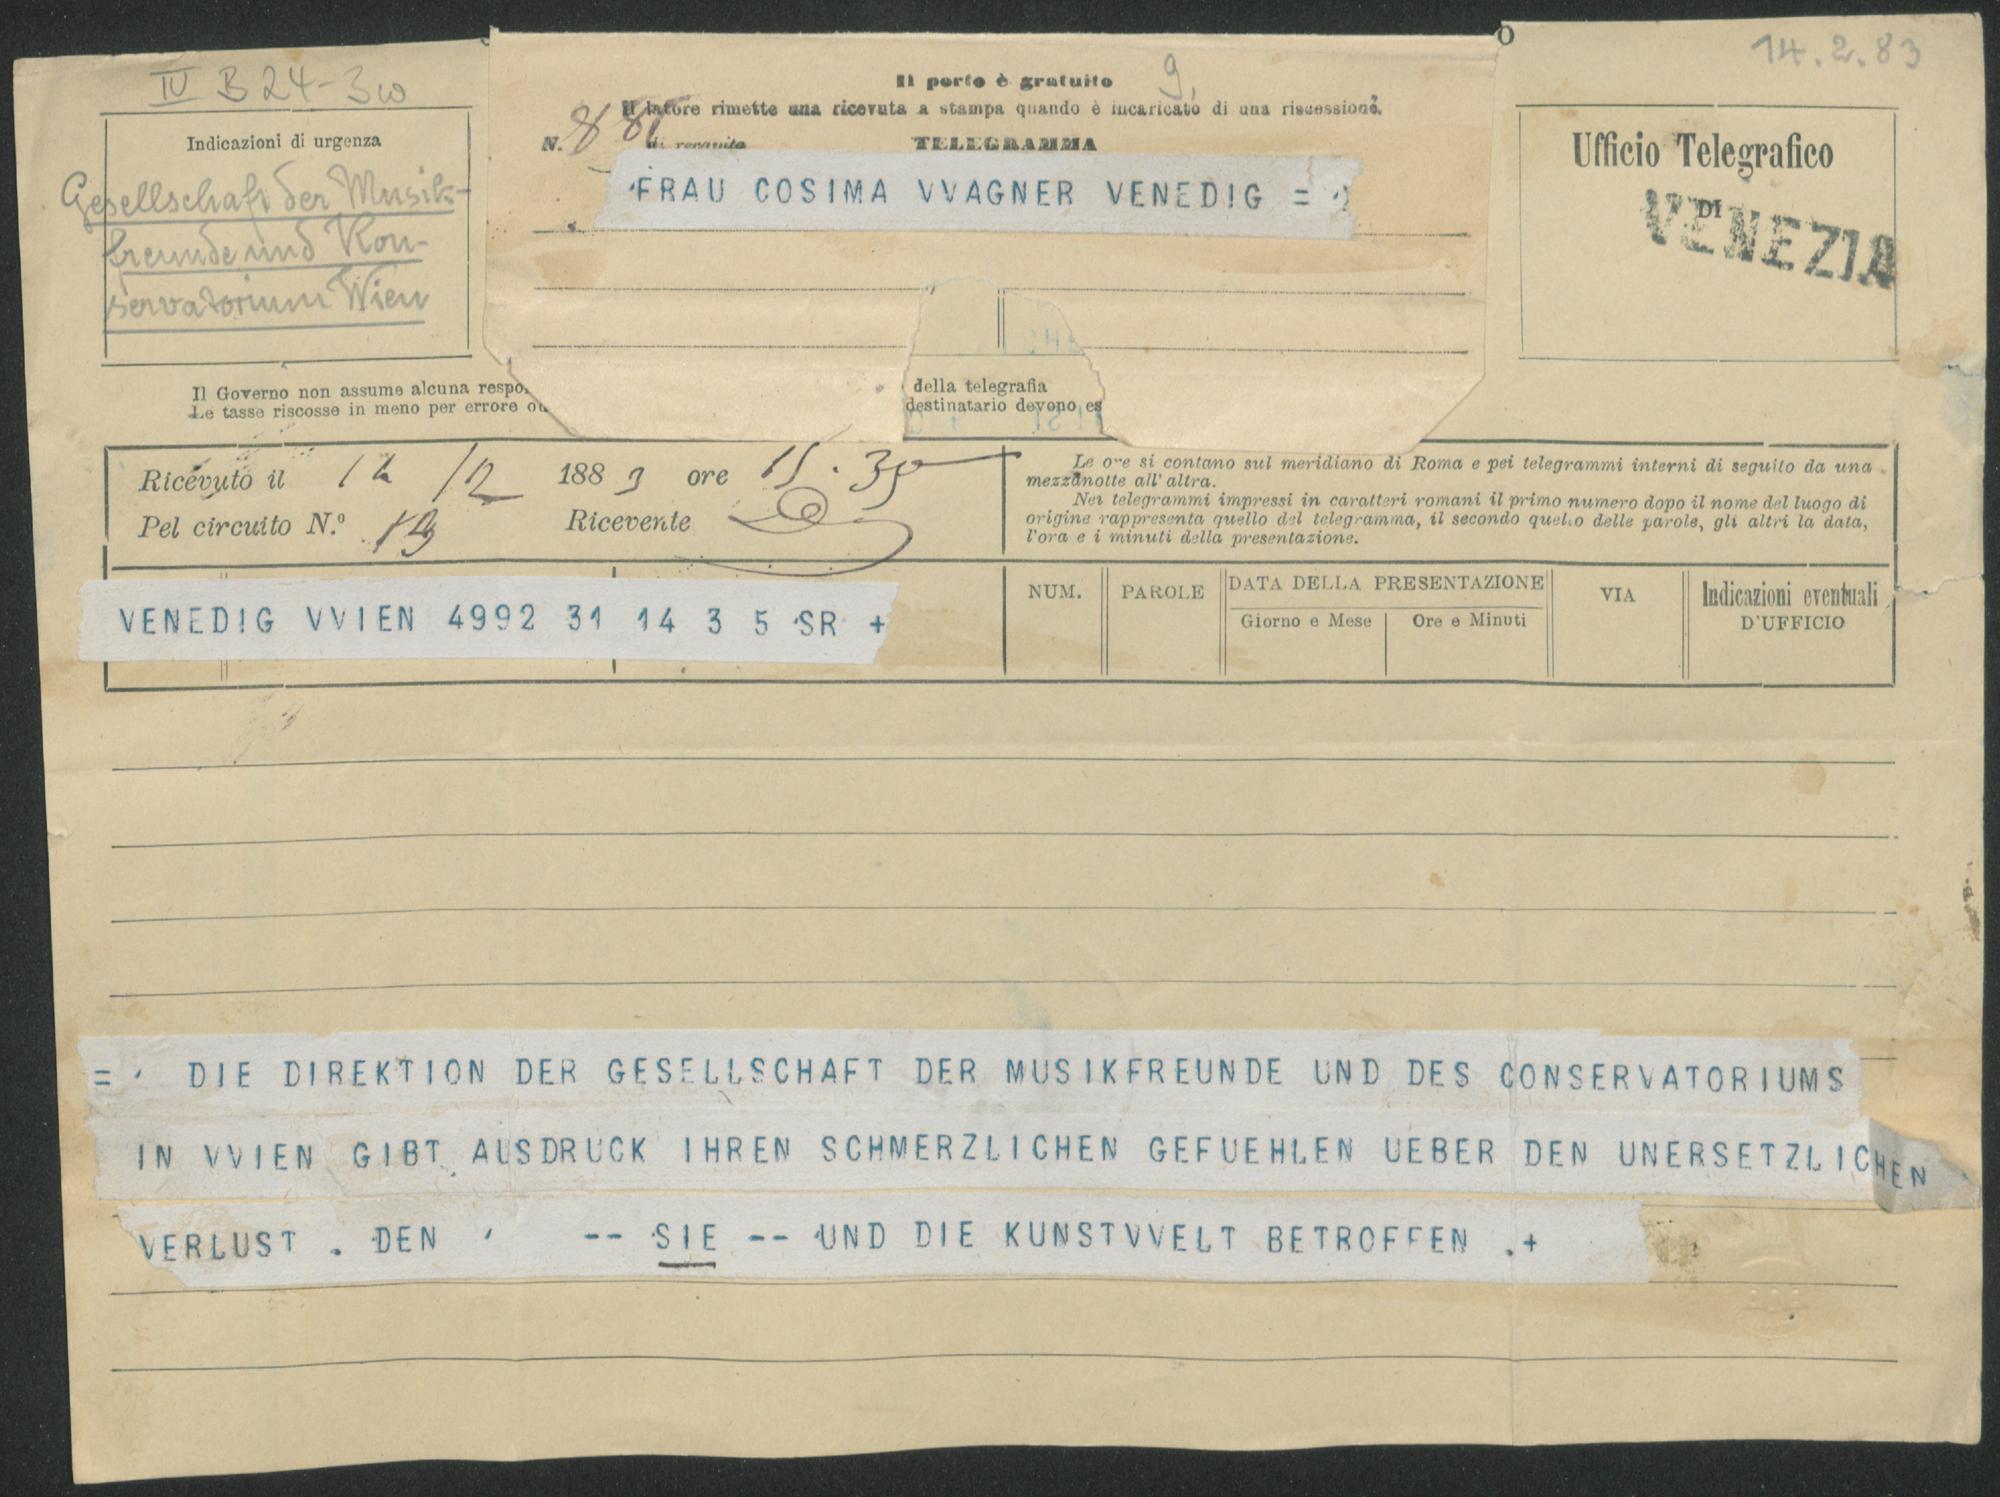 IV B 24-3w
14.2.83
Il porto è gratuito
9.
Il latore rimette una ricevuta a stampa quando è incaricato di una riscossione.
N. 881 di recapito TELEGRAMMA
FRAU COSIMA VVAGNER VENEDIG =
Indicazioni di urgenza
Gesellschaft der Musik-
freunde und Kon-
servatorium Wien
Ufficio Telegrafico
DI
VENEZIA
Il Governo non assume alcuna respo
della telegrafia
Le tasse riscosse in meno per errore ou
destinatario devono es
Ricevuto il 14/2 1883 ore 15.35
Pel circuito N.º 19 Ricevente
Le ore si contano sul meridiano di Roma e pei telegrammi interni di seguito da una
mezzanotte all'altra.
Nei telegrammi impressi in caratteri romani il primo numero dopo il nome del luogo di
origine rappresenta quello del telegramma, il secondo quello delle parole, gli altri la data,
l'ora e i minuti della presentazione.
VENEDIG VVIEN 4992 31 14 3 5 SR +
NUM. PAROLE DATA DELLA PRESENTAZIONE VIA Indicazioni eventuali
Giorno e Mese Ore e Minuti D'UFFICIO
= DIE DIREKTION DER GESELLSCHAFT DER MUSIKFREUNDE UND DES CONSERVATORIUMS
IN VVIEN GIBT AUSDRUCK IHREN SCHMERZLICHEN GEFUEHLEN UEBER DEN UNERSETZLICHEN
VERLUST . DEN ' -- SIE -- UND DIE KUNSTVVELT BETROFFEN .+